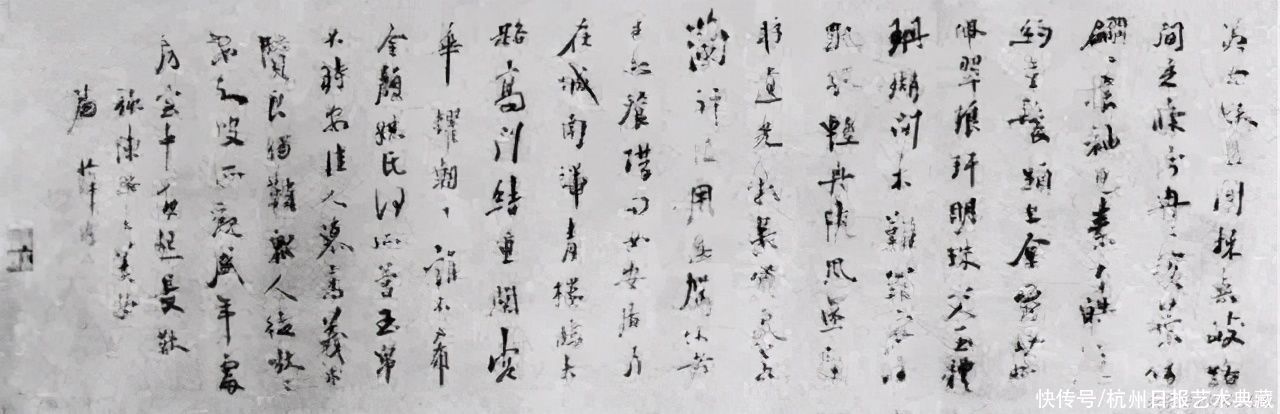 美女妖且閑採桑歧路
間柔條紛冉冉落葉何
翩翩攘袖見素手皓
約金環頭上金爵釵腰
佩翠琅玕明珠交玉體
珊瑚間木難羅衣何
飄飄輕裾隨風還顧
盼遺光彩長嘯氣若
蘭行徒用息駕休者
以忘餐借問女安居乃
在城南端青樓臨大
路高門結重關容
華耀朝日誰不希
令顏媒氏何所營玉帛
不時安佳人慕高義求
賢良獨難衆人徒嗷嗷
所觀盛年處
房室中夜起長歎
錄陳思王美女
篇
快传号/杭州日报艺术典藏